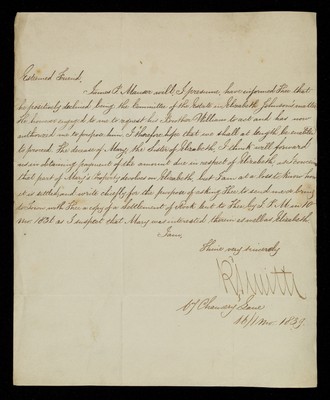 Esteemed Friend,
James P. Manser will, I presume, have informed Thee that
he positively declined being the Committee of the Estate in Elizabeth Johnson's matter
He however urged to me to request his Brother William to act and has now
authorized me to propose him. I therefore hope that we shall at length be enabled
to proceed. The demise of Mary, the sister of Elizabeth I think will forward
us in obtaining payment of the amount due in respect of Elizabeth, as however
that part of Mary's Property devolves on Elizabeth, but I am at a loss to know how
it is settled and write chiefly for the purpose of asking Thee to send me or bring
to Town with Thee a copy of a Settlement of Stock sent to Thee by J. P. M. in 10
Mo 1831 as I suspect that Mary was interested therein as well as Elizabeth
I am,
Thine very sincerely
R. Smith
67 Chancery Lane
16/1 Mo. 1839